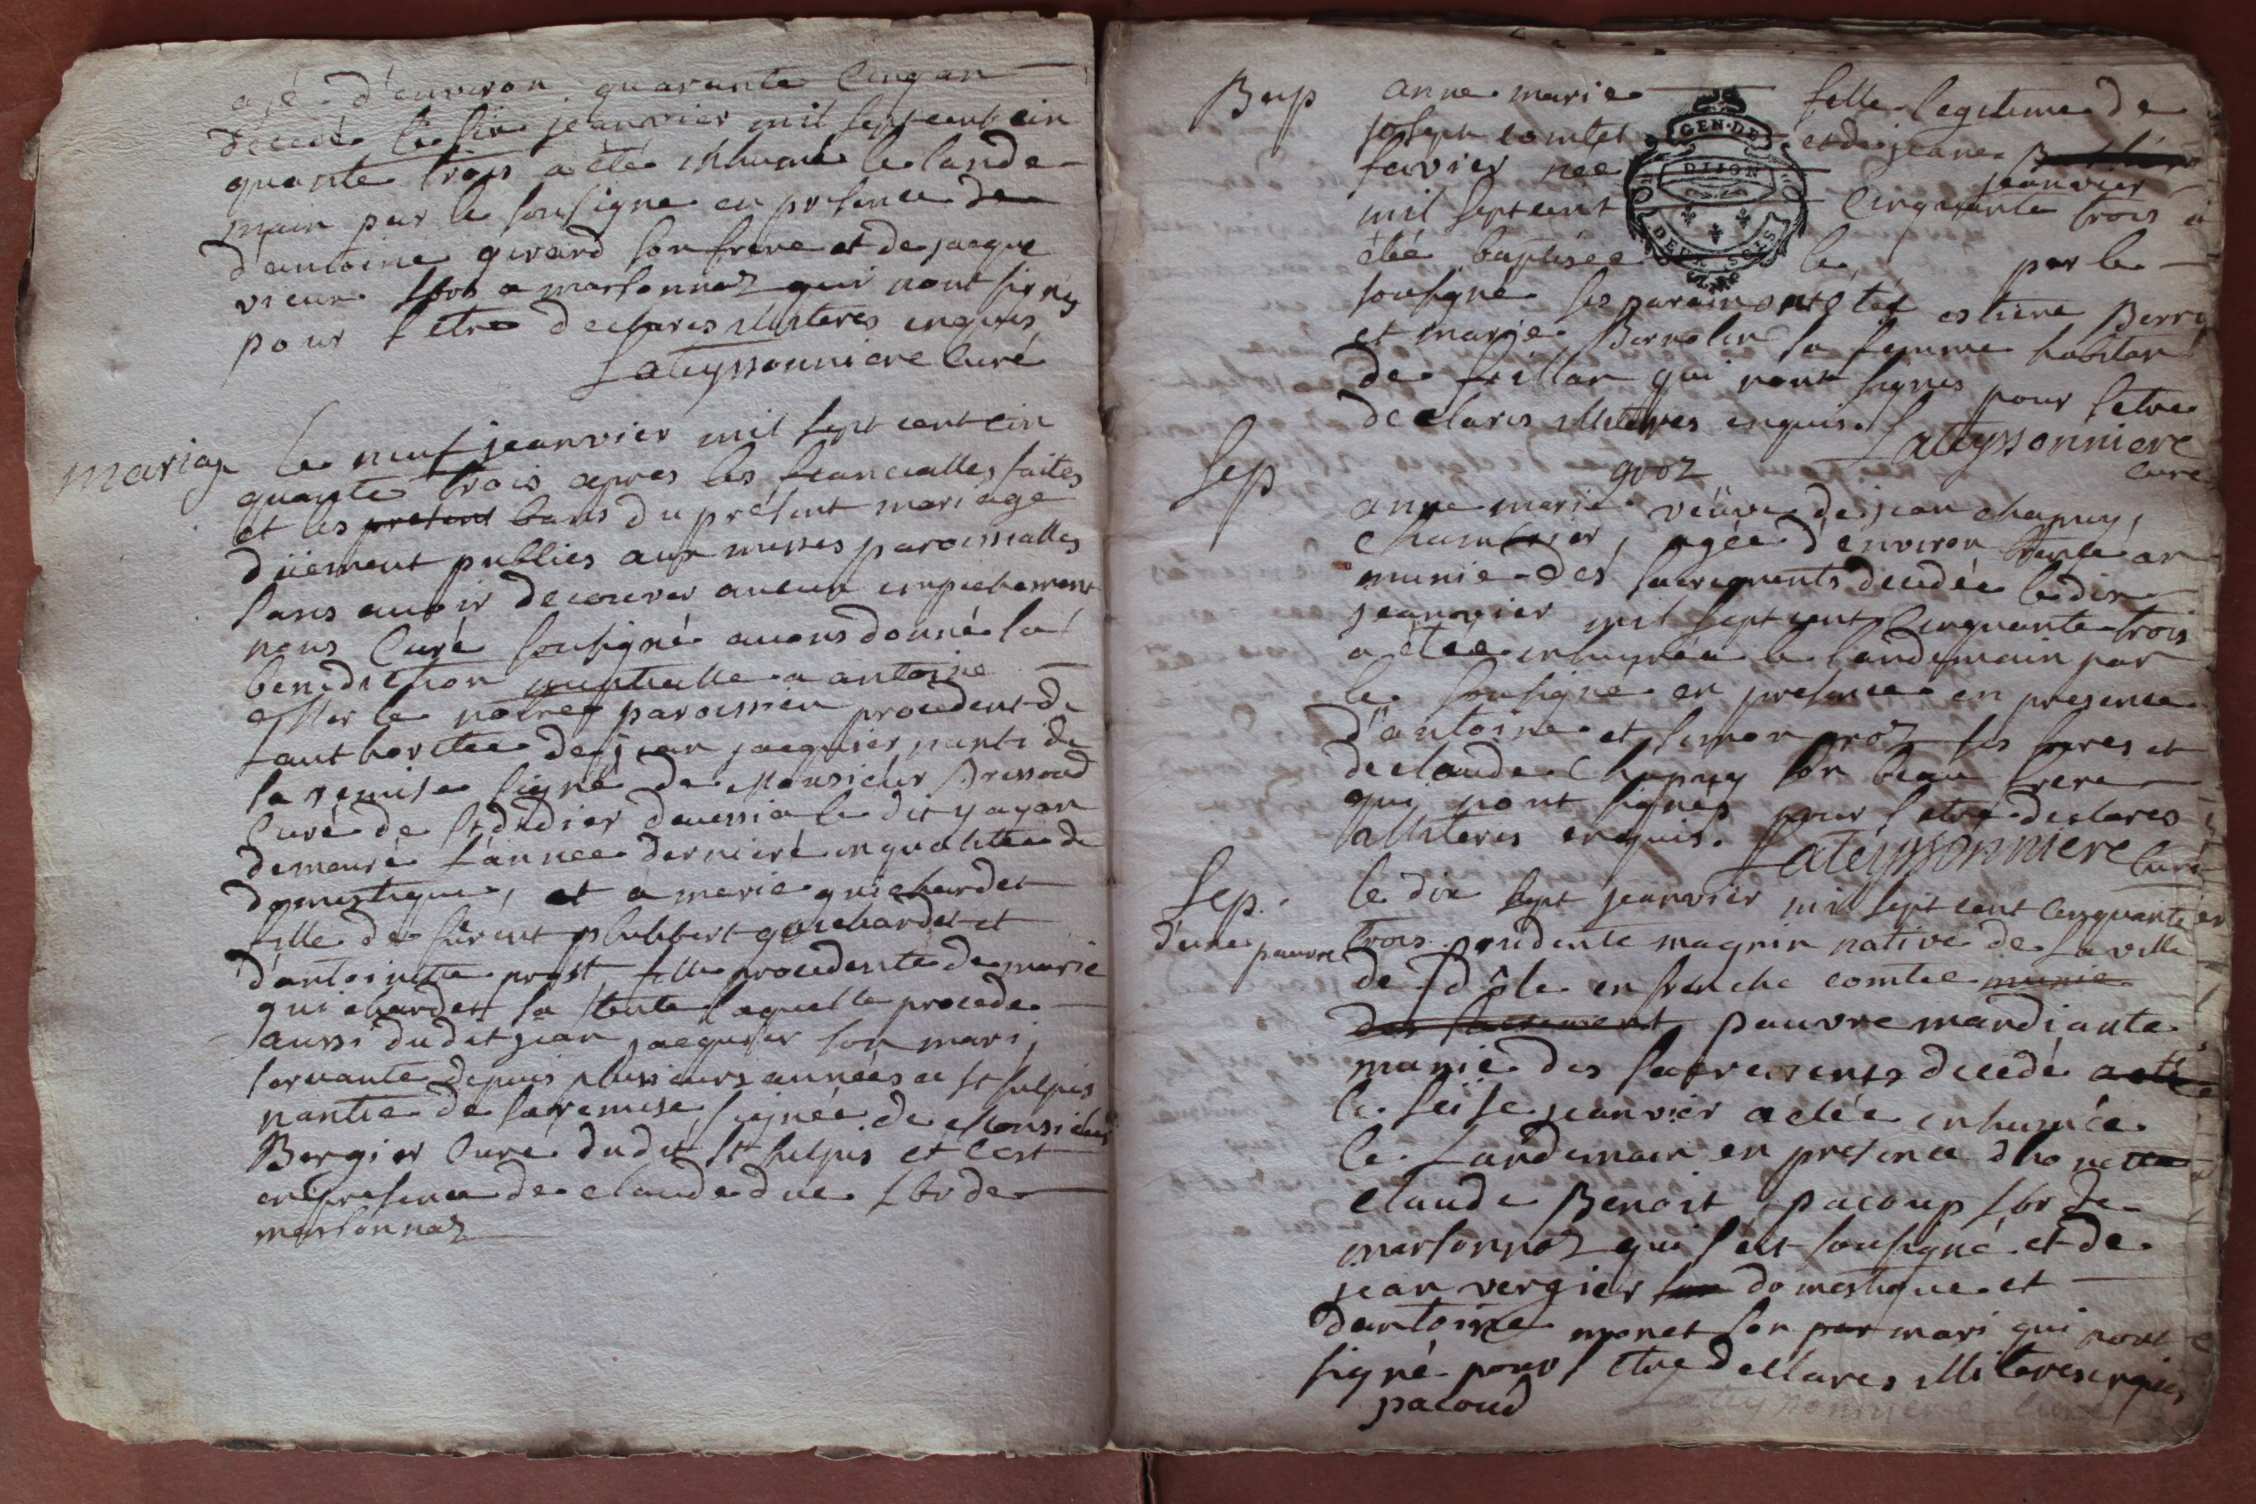 agé d'environ quarante cinq an
décédé le six jeanvier mil sept cent cin
quante trois a été inhumé le lande
main par le sousigne en présence de
d'antoine girard son frere et de jacque
vieux lbrs a marsonnaz qui nont signés
pour letre declares illiteres enquis
Lateyssonniere Curé
mariag le neuf jeanvier mil sept cent cin
quante trois apres les fiancialles faites
et les present bans du présent mariage
düement publies aux messes paroissialles
sans avoir decouver aucun empechement
nous Curé sousigné avons donné la
benediction nuptialle a antoine
notre paroissien procedent de
lauthoritee de jean jacquier nanti de
la remise signé de Monsieur Bressoud
Curé de St didier daussia le dit y ayan
demeuré l'annee derniere en qualitee de
domestique, et a marie guichardet
fille de philibert guichardet et
d'antoinette prost fille procedente de marie
guichardet sa tente laquelle procede
aussi dudit jean jacquier son mari,
servante depuis plusieurs années a St sulpis
nantie de la remise signée de Monsieur
Bergier Curé dudit St sulpis et cest
en presence de claude duc lbr de
marsonnaz
Bap anne marie fille legitime de
joseph comtet et de jeane
favier nee jeanvier
mil sept cent cinquante trois a
été baptisée le par le
sousigne ses parains ont été estiene Berr
et marie Bernolin sa femme habitan
de fillan qui nont signes pour letre
declares illiteres enquis. Lateyssonniere
Curé
Sep groz
anne marie veüve de jean chapuy,
chambrier, agée d'environ trente an
munie des sacrements décédée le dix
jeanvier mil sept cent cinquante trois
a étée inhumée le landemain par
le sousigné en presence en presence
d'antoine et simon groz ses freres et
de claude Chapuy son beau frere
qui nont signés pour l'etre declares
illiteris enquis. Lateyssonniere Curé
Sep. le dix sept jeanvier mil sept cent cinquante
d'une pauvre trois prudente magnin native de la ville
de Dôle en franche comtee munie
des sacrement pauvre mandiante
munie des sacrements décédé a été
le seise jeanvier a étée inhumée
le landemain en presence d'honette
claude Benoit pacoup lbr de
marsonnaz qui sest sousigné et de
jean vergier son domestique et
dantoine monet son par mari qui nont
signé pour l'etre declares illiteres enquis
pacoud Lateyssonniere Curé
GEN. DE
DIJON
DEUX SOLS